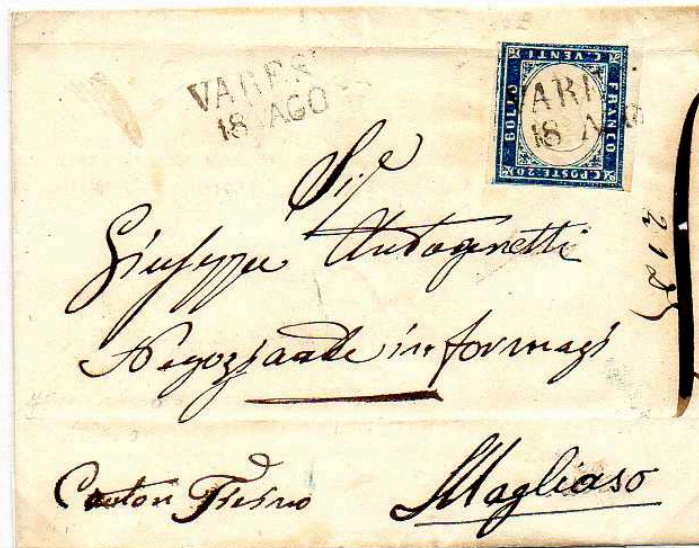 VARES
18 AGO
C. VENTI
BOLLO
FRANCO
C. POSTE. 20
VARE
18 A
Sig.e
Giuseppe Antoginetti
Negoziante in formagi
Canton Ticino
Magliaso